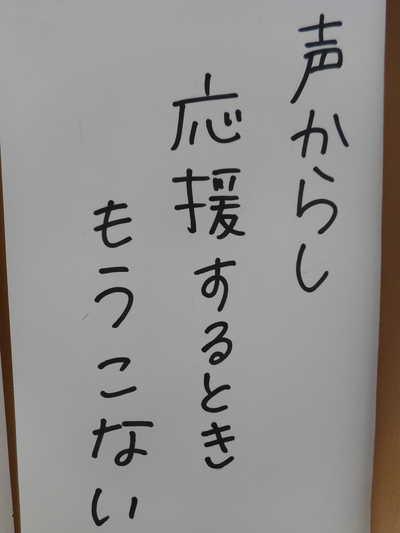 声からし
応援するとき
もうこない